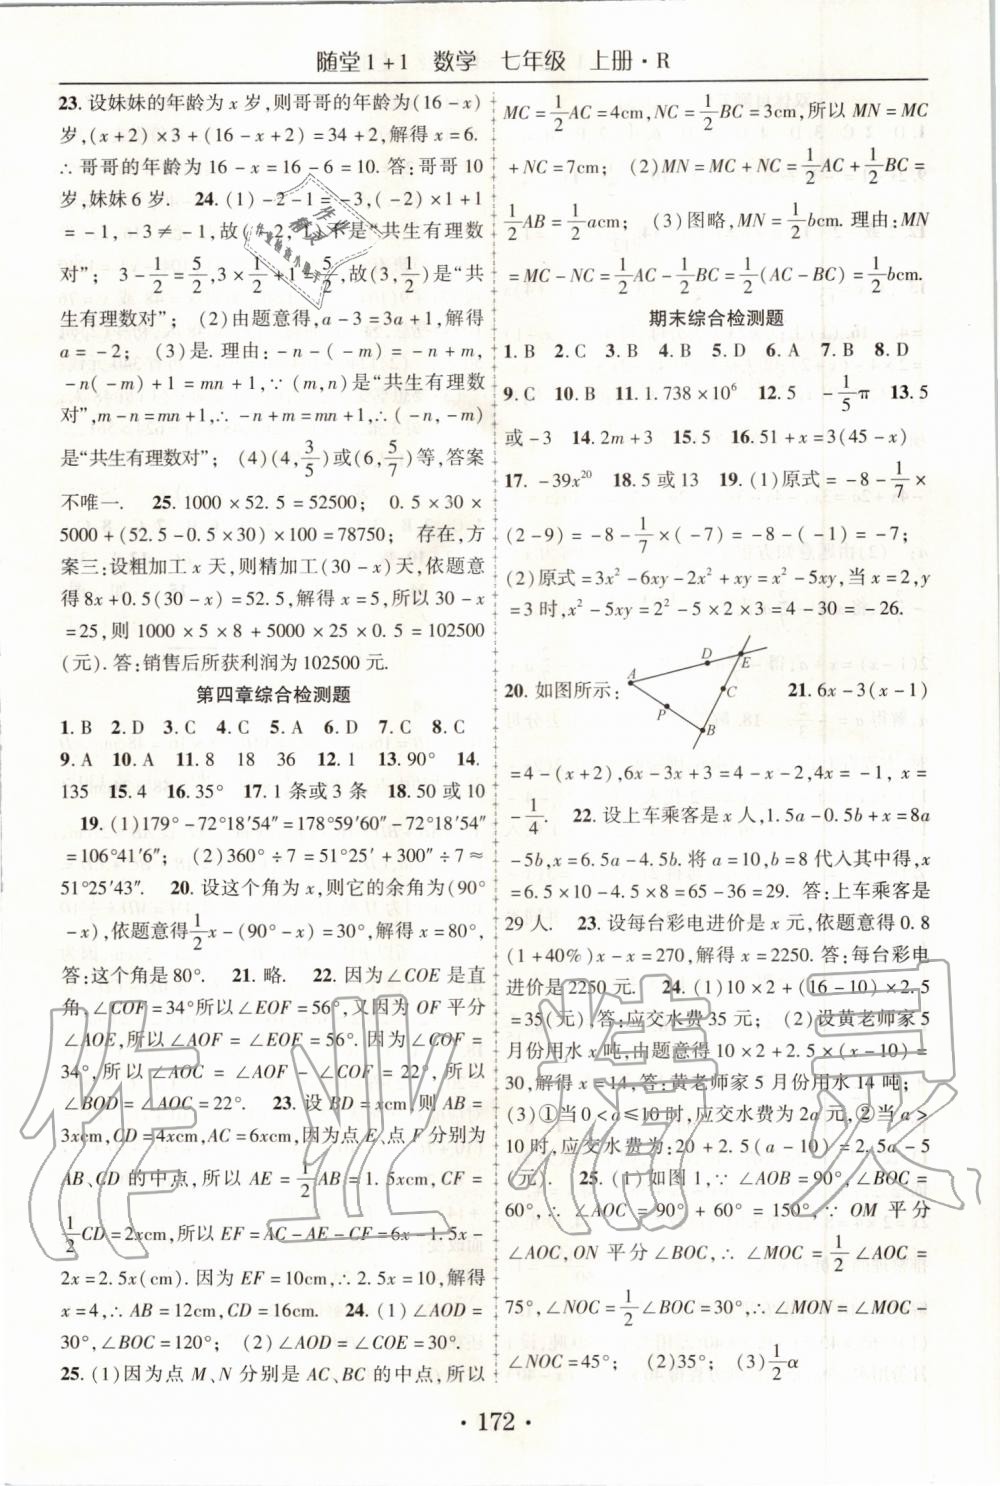 随堂1+1 数学 七年级 上册·R
23. 设妹妹的年龄为 x 岁,则哥哥的年龄为(16-x)
岁,(x+2)×3+(16-x+2)=34+2,解得 x=6.
∴哥哥的年龄为 16-x=16-6=10. 答:哥哥 10
岁,妹妹 6 岁. 24. (1)-2-1=-3,(-2)×1+1
=-1,-3≠-1,故(-2,1)不是“共生有理数
对”; 3-1/2=5/2,3×1/2+1=5/2,故(3,1/2)是“共
生有理数对”; (2)由题意得,a-3=3a+1,解得
a=-2; (3)是. 理由:-n-(-m)=-n+m,
-n(-m)+1=mn+1,∵(m,n)是“共生有理数
对”,m-n=mn+1,∴-n+m=mn+1,∴(-n,-m)
是“共生有理数对”; (4)(4,3/5)或(6,5/7)等,答案
不唯一. 25. 1000×52.5=52500; 0.5×30×
5000+(52.5-0.5×30)×100=78750; 存在,方
案三:设粗加工 x 天,则精加工(30-x)天,依题意
得 8x+0.5(30-x)=52.5,解得 x=5,所以 30-x
=25,则 1000×5×8+5000×25×0.5=102500
(元). 答:销售后所获利润为 102500 元.
第四章综合检测题
1. B 2. D 3. C 4. C 5. A 6. D 7. C 8. C
9. A 10. A 11. 8 18 36 12. 12 13. 90° 14.
135 15. 4 16. 35° 17. 1 条或 3 条 18. 50 或 10
19. (1)179°-72°18′54″=178°59′60″-72°18′54″
=106°41′6″; (2)360°÷7=51°25′+300″÷7≈
51°25′43″. 20. 设这个角为 x,则它的余角为(90°
-x),依题意得1/2x-(90°-x)=30°,解得 x=80°,
答:这个角是 80°. 21. 略. 22. 因为∠COE 是直
角,∠COF=34°所以∠EOF=56°,又因为 OF 平分
∠AOE,所以∠AOF=∠EOF=56°. 因为∠COF=
34°,所以∠AOC=∠AOF-∠COF=22°,所以
∠BOD=∠AOC=22°. 23. 设 BD=xcm,则 AB=
3xcm,CD=4xcm,AC=6xcm,因为点 E、点 F 分别为
AB、CD 的中点,所以 AE=1/2AB=1.5xcm,CF=
1/2CD=2xcm,所以 EF=AC-AE-CF=6x-1.5x-
2x=2.5x(cm). 因为 EF=10cm,∴2.5x=10,解得
x=4,∴AB=12cm,CD=16cm. 24. (1)∠AOD=
30°,∠BOC=120°; (2)∠AOD=∠COE=30°.
25. (1)因为点 M、N 分别是 AC、BC 的中点,所以
MC=1/2AC=4cm,NC=1/2BC=3cm,所以 MN=MC
+NC=7cm; (2)MN=MC+NC=1/2AC+1/2BC=
1/2AB=1/2acm; (3)图略,MN=1/2bcm. 理由:MN
=MC-NC=1/2AC-1/2BC=1/2(AC-BC)=1/2bcm.
期末综合检测题
1. B 2. C 3. B 4. B 5. D 6. A 7. B 8. D
9. C 10. B 11. 1.738×10⁶ 12. 5 -1/5π 13. 5
或-3 14. 2m+3 15. 5 16. 51+x=3(45-x)
17. -39x²⁰ 18. 5 或 13 19. (1)原式=-8-1/7×
(2-9)=-8-1/7×(-7)=-8-(-1)=-7;
(2)原式=3x²-6xy-2x²+xy=x²-5xy,当 x=2,y
=3 时,x²-5xy=2²-5×2×3=4-30=-26.
20. 如图所示: A D E C P B 21. 6x-3(x-1)
=4-(x+2),6x-3x+3=4-x-2,4x=-1, x=
-1/4. 22. 设上车乘客是 x 人,1.5a-0.5b+x=8a
-5b,x=6.5a-4.5b. 将 a=10,b=8 代入其中得,x
=6.5×10-4.5×8=65-36=29. 答:上车乘客是
29 人. 23. 设每台彩电进价是 x 元,依题意得 0.8
(1+40%)x-x=270,解得 x=2250. 答:每台彩电
进价是 2250 元. 24. (1)10×2+(16-10)×2.5
=35(元),答:应交水费 35 元; (2)设黄老师家 5
月份用水 x 吨,由题意得 10×2+2.5×(x-10)=
30,解得 x=14,答:黄老师家 5 月份用水 14 吨;
(3)①当 0<a≤10 时,应交水费为 2a 元,②当 a>
10 时,应交水费为:20+2.5(a-10)=2.5a-5
(元). 25. (1)如图 1,∵∠AOB=90°,∠BOC=
60°,∴∠AOC=90°+60°=150°,∵OM 平分
∠AOC,ON 平分∠BOC,∴∠MOC=1/2∠AOC=
75°,∠NOC=1/2∠BOC=30°,∴∠MON=∠MOC-
∠NOC=45°; (2)35°; (3)1/2α
·172·
作业精灵